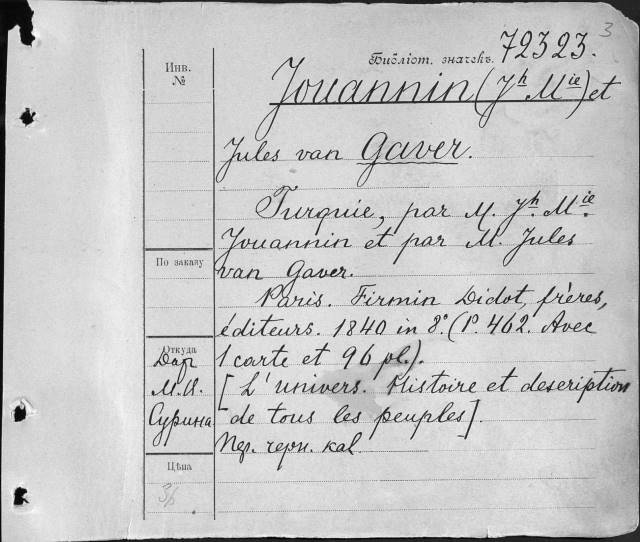 3
Библіот. значекъ. 72323.
Инв. №
Jouannin (Jh Mie) et
Jules van Gaver.
Turquie, par M. Jh. Mie.
Jouannin et par M. Jules
van Gaver.
По заказу
Paris. Firmin Didot, frères,
éditeurs. 1840 in 8°. (P. 462. Avec
1 carte et 96 pl.).
Откуда
Дар
М. И.
Сурина
[L'univers. Histoire et description
de tous les peuples].
Пер. черн. кал.
Цѣна